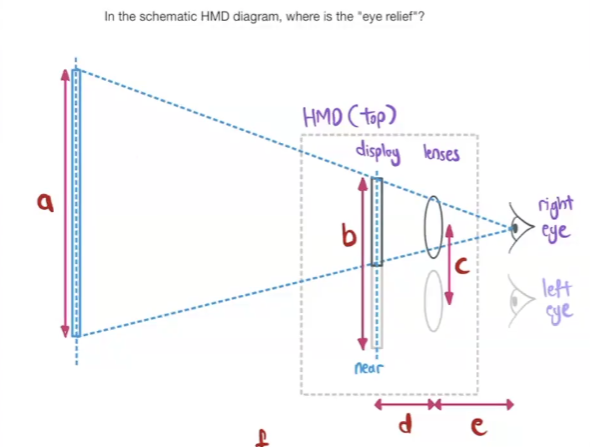 In the schematic HMD diagram, where is the "eye relief"?
HMD (top)
display lenses
a
b
c
right
eye
left
eye
near
d e
f